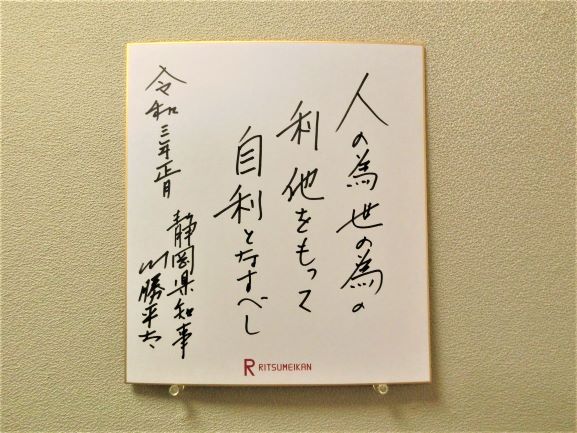 人の為世の為の
利他をもって
自利となすべし
令和三年正月
静岡県知事
川勝平太
RITSUMEIKAN